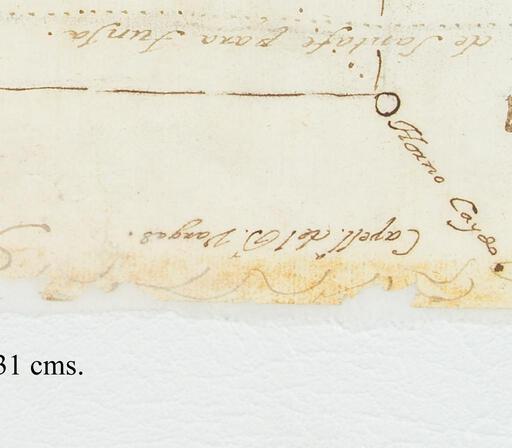 de Santafe para Tunja.
Horno Caydo
Capell.ª del D.r Vargas.
31 cms.